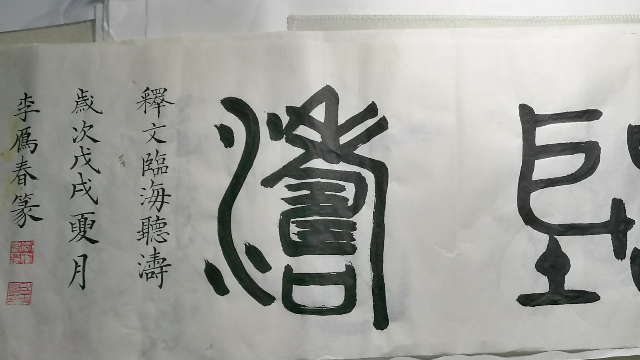 濤
釋文臨海聽濤
歲次戊戌夏月
李鴈春篆